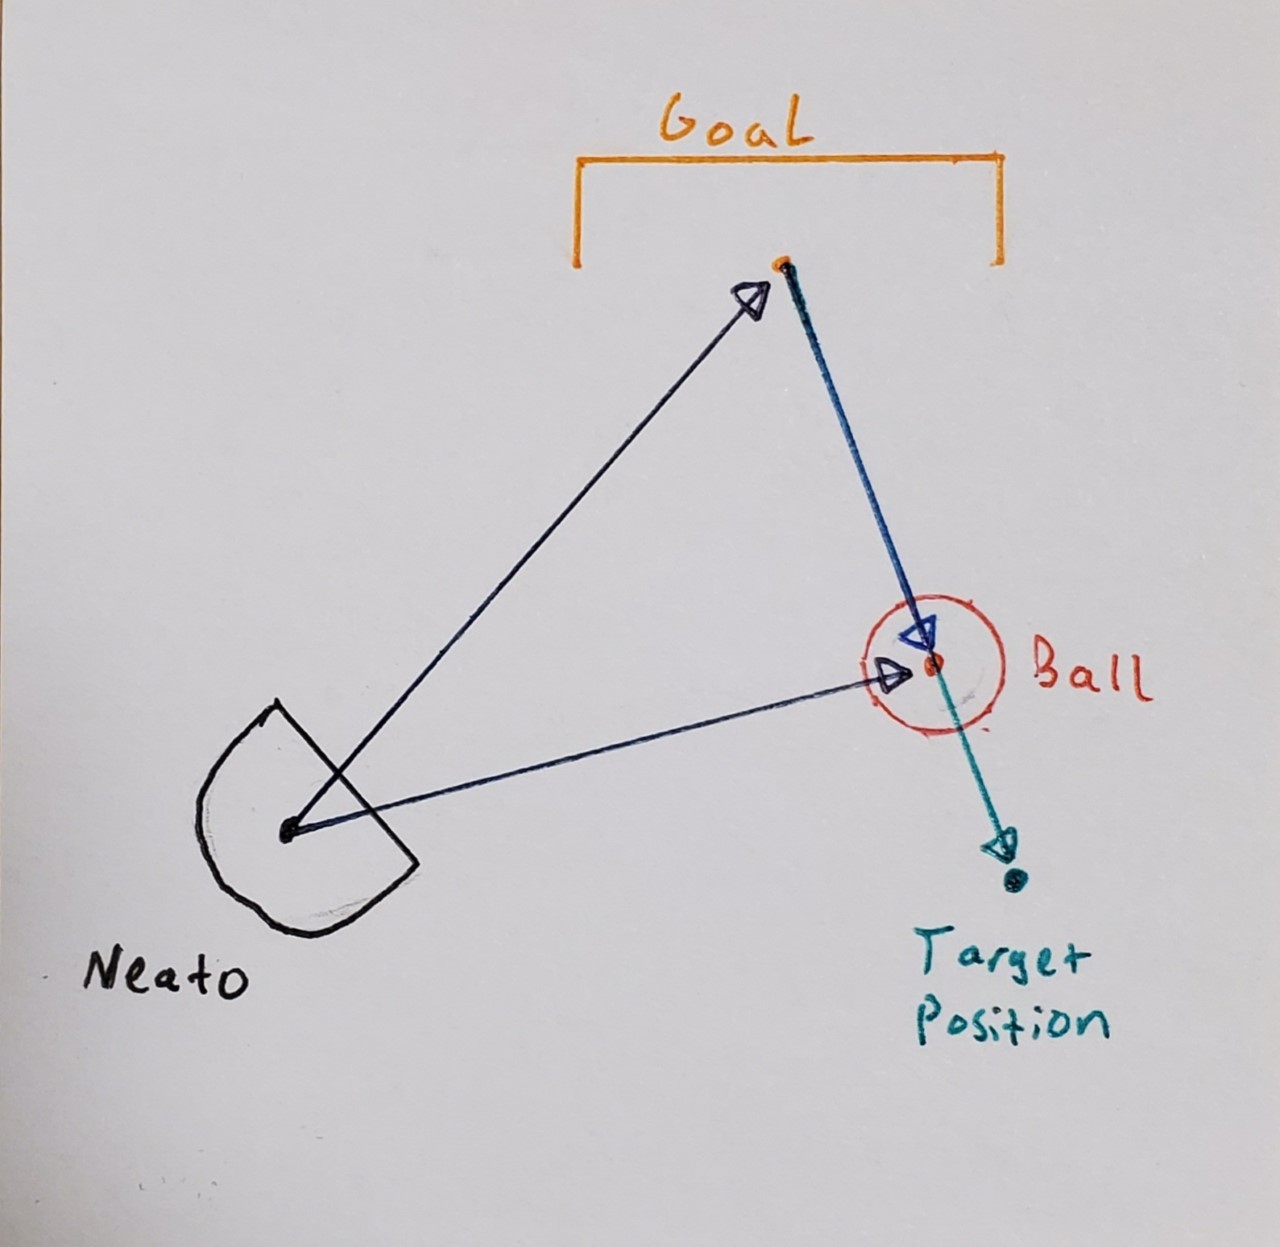 Goal
Ball
Neato
Target
Position